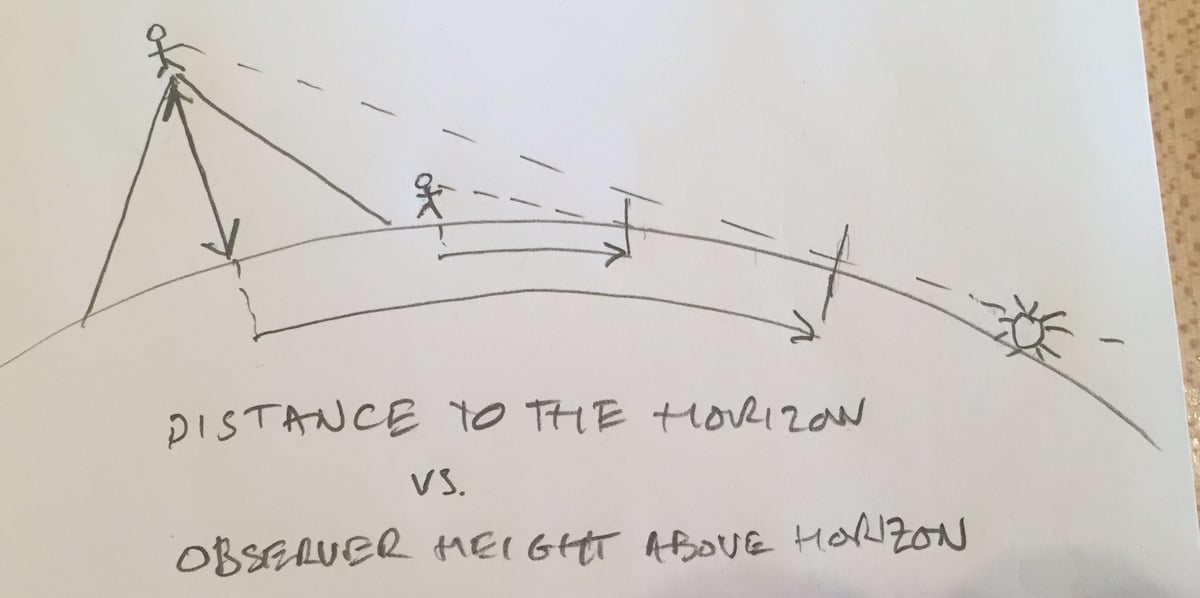 DISTANCE TO THE HORIZON
VS.
OBSERVER HEIGHT ABOVE HORIZON